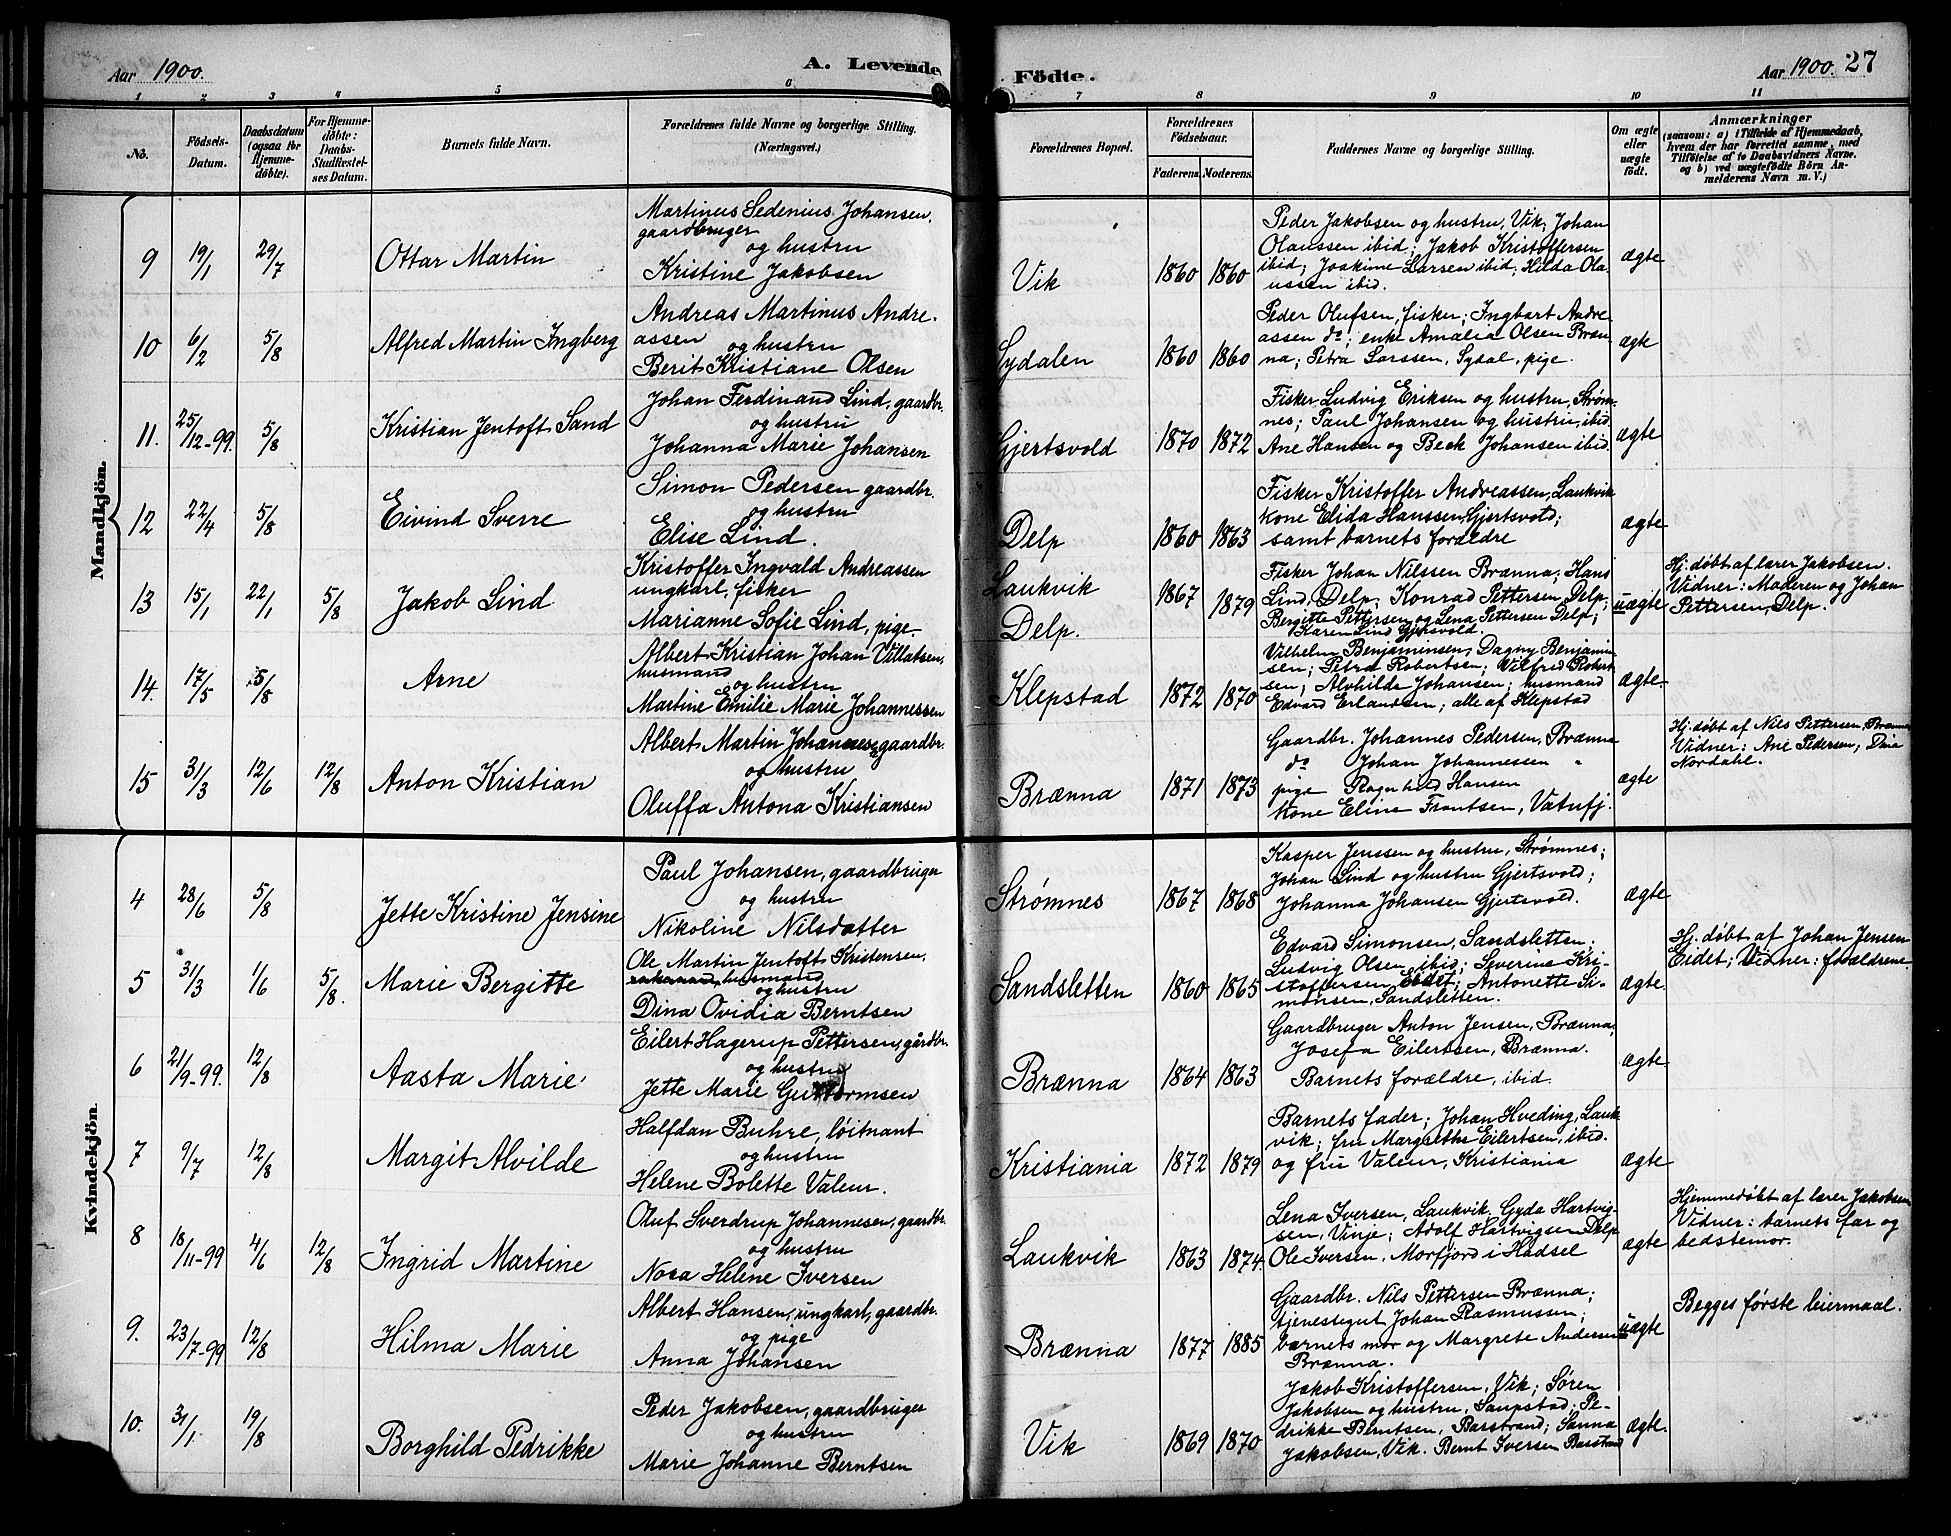 Aar 1900.
A. Levende
Födte.
Aar 1900. 27
1 2 3 4 5 6 7 8 9 10 11
No.
Födsels-
Datum.
Daabsdatum
(ogsaa for
Hjemme-
döbte).
For Hjemme-
döbte:
Daabs-
Stadfestel-
ses Datum.
Barnets fulde Navn.
Forældrenes fulde Navne og borgerlige Stilling.
(Næringsvei.)
Forældrenes Bopæl.
Forældrenes
Födselsaar.
Faderens. Moderens.
Faddernes Navne og borgerlige Stilling.
Om ægte
eller
uægte
født.
Anmærkninger
(saasom: a) i Tilfælde af Hjemmedaab,
hvem der har forrettet samme, med
Tilföielse af to Daabsvidners Navne.
og b) ved uægtefödte Börn An-
melderens Navn m. V.)
Mandkjön.
9 19/1 29/7 Ottar Martin
Martinus Sedenius Johansen,
gaardbruger
og hustru
Kristine Jakobsen
Vik 1860 1860
Peder Jakobsen og hustru, Vik; Johan
Olaussen ibid; Jakob Kristoffersen
ibid; Joakime Larsen ibid; Hilda Ola-
ussen ibid.
ægte
10 6/2 5/8 Alfred Martin Ingberg
Andreas Martinus Andre-
assen
og hustru
Berit Kristiane Olsen
Sydalen 1860 1860
Peder Olufsen, fisker; Ingbart Andre-
assen do; enke Amalia Olsen Bræn-
na; Petra Larssen, Sydal, pige.
ægte
11. 25/12-99. 5/8 Kristian Jentoft Sand
Johan Ferdinand Lind, gaardbr.
og hustru
Johanna Marie Johansen
Gjertsvold 1870 1872
Fisker Ludvig Eriksen og hustru, Strøm-
nes; Paul Johansen og hustru, ibid.
Ane Hansen og Beck Johansen ibid.
ægte
12 22/4 5/8 Eivind Sverre
Simon Pedersen gaardbr.
og hustru
Elise Lind.
Delp 1860 1863
Fisker Kristoffer Andreassen, Laukvik
kone Elida Hanssen, Gjertsvold;
samt barnets forældre
ægte
13 15/1 22/1 5/8 Jakob Lind
Kristoffer Ingvald Andreassen
ungkarl, fisker
Marianne Sofie Lind, pige.
Laukvik
Delp.
1867 1879
Fisker Johan Nilssen Brænna; Hans
Lind, Delp; Konrad Pettersen Delp;
Bergitte Pettersen og Lena Pettersen Delp;
Karen Lind Gjertsvold.
uægte
Hj. døbt af lærer Jakobsen.
Vidner: Moderen og Johan
Pettersen, Delp.
14. 17/5 5/8 Arne
Albert Kristian Johan Villatsen,
husmand
og hustru
Martine Emilie Marie Johannessen
Klepstad 1872 1870
Vilhelm Benjaminsen, Dagny Benjamin-
sen; Petra Robertsen; Vilfred Robert-
sen; Alvhilda Johansen; husmand
Edvard Erlandsen; alle af Klepstad
ægte.
15 31/3 12/6 12/8 Anton Kristian
Albert Martin Johannesen gaardbr.
og hustru
Oluffa Antona Kristiansen
Brænna 1871 1873
Gaardbr. Johannes Pedersen, Brænna
do Johan Johannessen "
pige Ragnhild Hansen
Kone Eline Frantsen, Vatnfj.
ægte
Hj. døbt af Nils Pettersen, Brænna
Vidner: Ane Pedersen; Dina
Nordahl.
Kvindekjön.
4 28/6 5/8 Jette Kristine Jensine
Paul Johansen, gaardbruger
og hustru
Nikoline Nilsdatter
Strømnes 1867 1868
Kasper Jenssen og hustru, Strømnes;
Johan Lind og hustru Gjertsvold;
Johanna Johansen Gjertsvold.
ægte
5 31/3 1/6 5/8. Marie Bergitte
Ole Martin Jentoft Kristensen,
husmand
og hustru
Dina Ovidia Berntsen
Sandsletten 1860 1865
Edvard Simonsen, Sandsletten;
Ludvig Olsen ibid; Severina Kri-
stoffersen Eidet; Antonette Si-
monsen, Sandsletten.
ægte.
Hj. døbt af Johan Jensen
Eidet; Vidner: forældrene.
6 21/9-99. 12/8 Aasta Marie
Eilert Hagerup Pettersen, gårdbr.
og hustru
Jette Marie Guttormsen
Brænna 1864 1863
Gaardbruger Anton Jensen, Brænna;
Josefa Eilertsen, Brænna.
Barnets forældre, ibid.
ægte
7 9/7 12/8 Margit Alvilde
Halfdan Buhre, løitnant
og hustru
Helene Bolette Valeur.
Kristiania 1872 1879
Barnets fader; Johan Hveding, Lauk-
vik; fru Margrethe Eilertsen, ibid.
og fru Valeur, Kristiania
ægte
8 18/11-99 4/6 12/8 Ingrid Martine
Oluf Sverdrup Johannesen, gaardbr.
og hustru
Nora Helene Iversen
Laukvik 1863 1874.
Lena Iversen, Laukvik. Gyda Hartvig-
sen, Vinje; Adolf Hartvigsen Delp
Ole Iversen, Morfjord i Hadsel
ægte
Hjemmedøbt af lærer Jakobsen
Vidner: barnets far og
bedstemor.
9. 23/7-99 12/8 Hilma Marie
Albert Hansen, ungkarl, gaardbr.
og pige
Anna Johansen
Brænna 1877 1885
Gaardbr. Nils Pettersen Brænna;
tjenestegut Johan Rasmussen;
barnets mor og Margrete Andersen
Brænna.
uægte
Begges første leiermaal.
10. 31/1 19/8 Borghild Pedrikke
Peder Jakobsen, gaardbruger
og hustru
Marie Johanne Berntsen
Vik 1869 1870
Jakob Kristoffersen, Vik; Søren
Jakobsen og hustru, Saupstad; Pe-
drikke Berntsen, Barstrand; Sanna
Jakobsen, Vik. Bernt Iversen Barstrand
ægte.